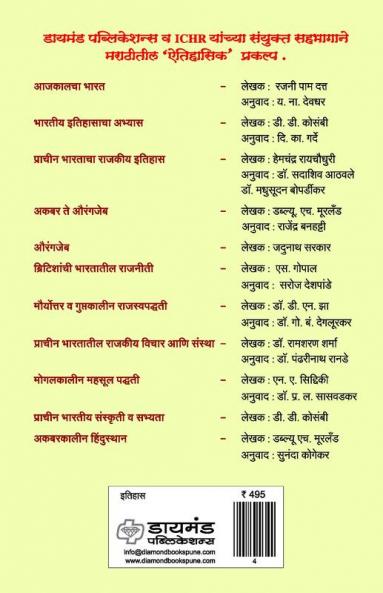 डायमंड पब्लिकेशन्स व ICHR यांच्या संयुक्त सहभागाने
मराठीतील ‘ऐतिहासिक’ प्रकल्प .
आजकालचा भारत – लेखक : रजनी पाम दत्त
अनुवाद : य. ना. देवधर
भारतीय इतिहासाचा अभ्यास – लेखक : डी. डी. कोसंबी
अनुवाद : दि. का. गर्दे
प्राचीन भारताचा राजकीय इतिहास – लेखक : हेमचंद्र रायचौधुरी
अनुवाद : डॉ. सदाशिव आठवले
डॉ. मधुसूदन बोपर्डीकर
अकबर ते औरंगजेब – लेखक : डब्ल्यू. एच. मूरलँड
अनुवाद : राजेंद्र बनहट्टी
औरंगजेब – लेखक : जदुनाथ सरकार
ब्रिटिशांची भारतातील राजनीती – लेखक : एस. गोपाल
अनुवाद : सरोज देशपांडे
मौर्योत्तर व गुप्तकालीन राजस्वपद्धती – लेखक : डॉ. डी. एन. झा
अनुवाद : डॉ. गो. बं. देगलूरकर
प्राचीन भारतातील राजकीय विचार आणि संस्था – लेखक : डॉ. रामशरण शर्मा
अनुवाद : डॉ. पंढरीनाथ रानडे
मोगलकालीन महसूल पद्धती – लेखक : एन. ए. सिद्दिकी
अनुवाद : डॉ. प्र. ल. सासवडकर
प्राचीन भारतीय संस्कृती व सभ्यता – लेखक : डी. डी. कोसंबी
अकबरकालीन हिंदुस्थान – लेखक : डब्ल्यू एच. मूरलँड
अनुवाद : सुनंदा कोगेकर
इतिहास ₹ 495
डायमंड
पब्लिकेशन्स
info@diamondbookspune.com
www.diamondbookspune.com
4